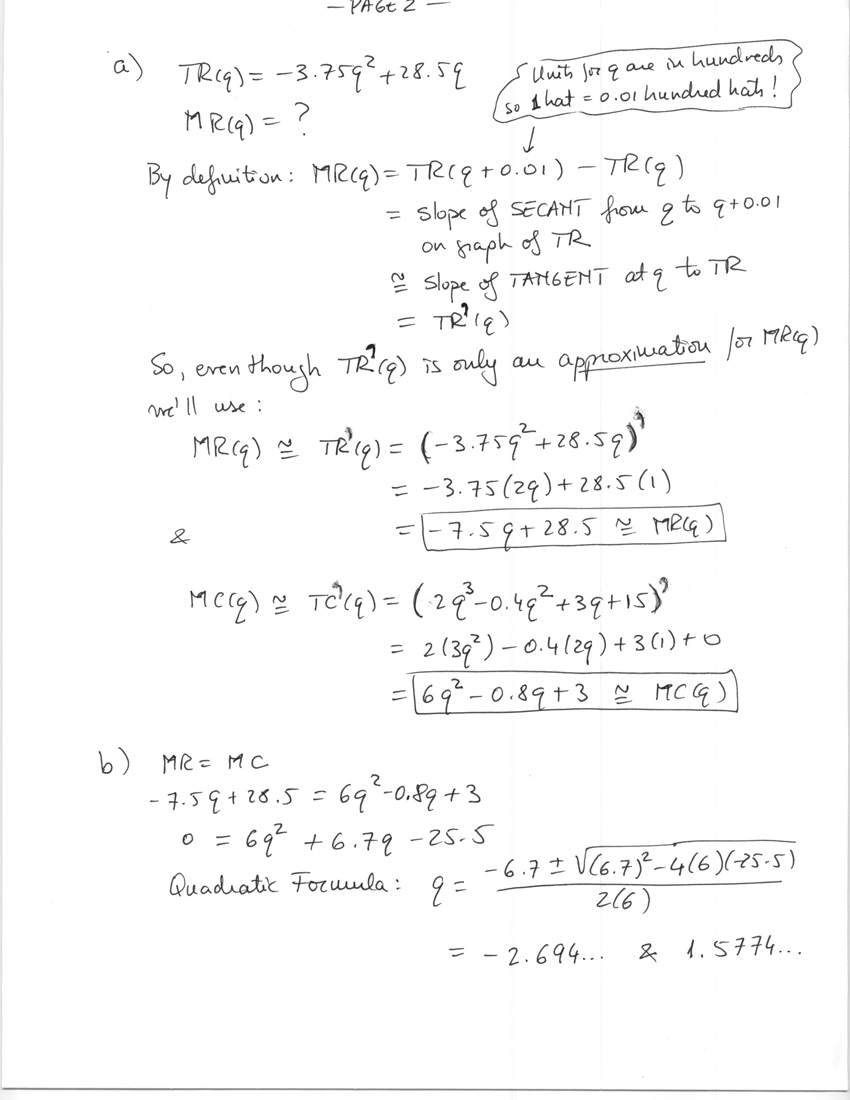 — PAGE 2 —
a) TR(q) = -3.75q² + 28.5q
Units for q are in hundreds
so 1 hat = 0.01 hundred hats!
MR(q) = ?
↓
By definition: MR(q) = TR(q + 0.01) - TR(q)
= slope of SECANT from q to q+0.01
on graph of TR
≅ slope of TANGENT at q to TR
= TR'(q)
So, even though TR'(q) is only an approximation for MR(q)
we'll use:
MR(q) ≅ TR'(q) = (-3.75q² + 28.5q)'
= -3.75(2q) + 28.5(1)
= -7.5q + 28.5 ≅ MR(q)
&
MC(q) ≅ TC'(q) = (2q³ - 0.4q² + 3q + 15)'
= 2(3q²) - 0.4(2q) + 3(1) + 0
= 6q² - 0.8q + 3 ≅ MC(q)
b) MR = MC
-7.5q + 28.5 = 6q² - 0.8q + 3
0 = 6q² + 6.7q - 25.5
Quadratic Formula: q = (-6.7 ± √((6.7)² - 4(6)(-25.5))) / 2(6)
= -2.694... & 1.5774...